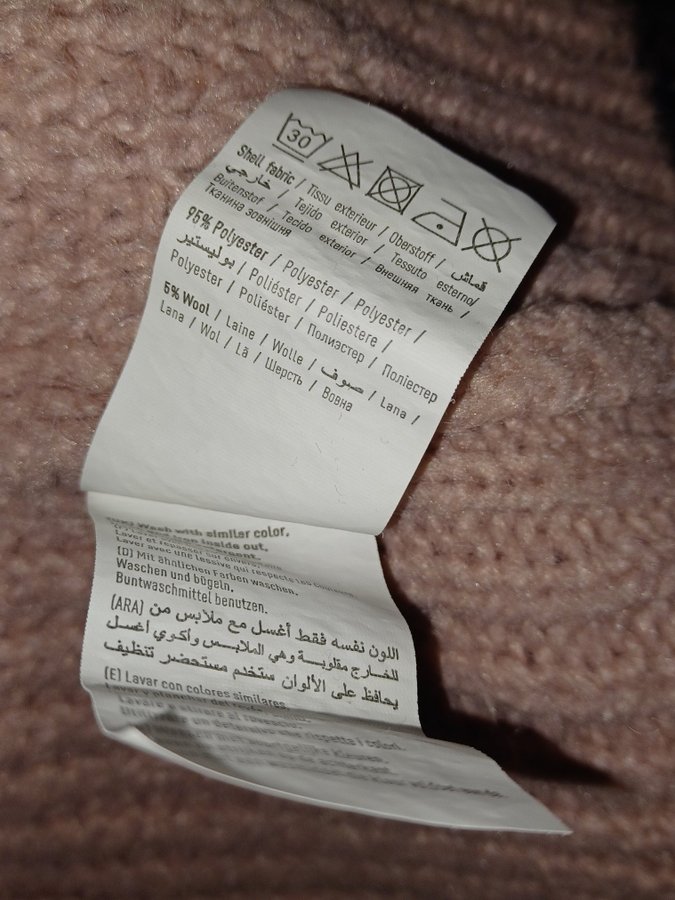 30
Shell fabric / Tissu exterieur / Oberstoff / قماش
خارجي / Tejido exterior / Tessuto esterno/
Buitenstof / Tecido exterior / Внешняя ткань /
Тканина зовнішня
95% Polyester / Polyester / Polyester /
بوليستير / Poliéster / Poliestere /
Polyester / Poliéster / Полиэстер / Поліестер
5% Wool / Laine / Wolle / صوف / Lana /
Lana / Wol / Lã / Шерсть / Вовна
Wash with similar color,
inside out,
Laver et repasser sur
Laver avec une lessive qui respecte les couleurs.
(D) Mit ähnlichen Farben waschen.
Waschen und bügeln.
Buntwaschmittel benutzen.
(ARA) اللون نفسه فقط أغسل مع ملابس من
للخارج مقلوبة وهي الملابس وأكوي اغسل
يحافظ على الألوان ستخدم مستحضر تنظيف
(E) Lavar con colores similares.
Lavar y planchar del
i colori.